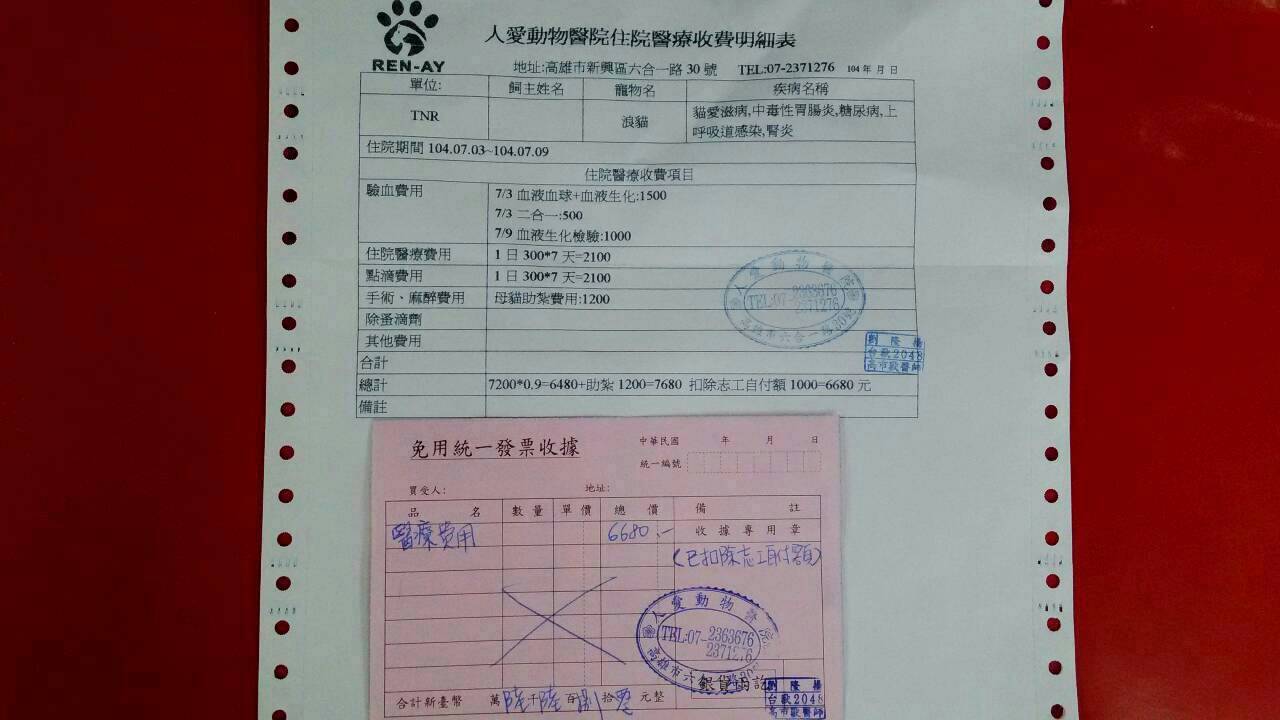 REN-AY
人愛動物醫院住院醫療收費明細表
地址:高雄市新興區六合一路 30 號 TEL:07-2371276 104 年 月 日
單位: 飼主姓名 寵物名 疾病名稱
TNR 浪貓 貓愛滋病,中毒性胃腸炎,糖尿病,上
呼吸道感染,腎炎
住院期間 104.07.03~104.07.09
住院醫療收費項目
驗血費用 7/3 血液血球+血液生化:1500
7/3 二合一:500
7/9 血液生化檢驗:1000
住院醫療費用 1 日 300*7 天=2100
點滴費用 1 日 300*7 天=2100
手術、麻醉費用 母貓助紮費用:1200
除蚤滴劑
其他費用
合計
總計 7200*0.9=6480+助紮 1200=7680 扣除志工自付額 1000=6680 元
備註
人愛動物醫院
TEL:07-2363676
2371276
高雄市六合一路30號
劉隆揚
台獸2048
高市獸醫師
免用統一發票收據
中華民國 年 月 日
統一編號
買受人: 地址:
品名 數量 單價 總價 備註
醫療費用 6680.- 收據專用章
(已扣除志工自付額)
人愛動物醫院
TEL:07-2363676
2371276
高雄市六
銀貨兩訖
合計新臺幣 萬陸千陸百捌拾零元整
劉隆揚
台獸2048
高市獸醫師